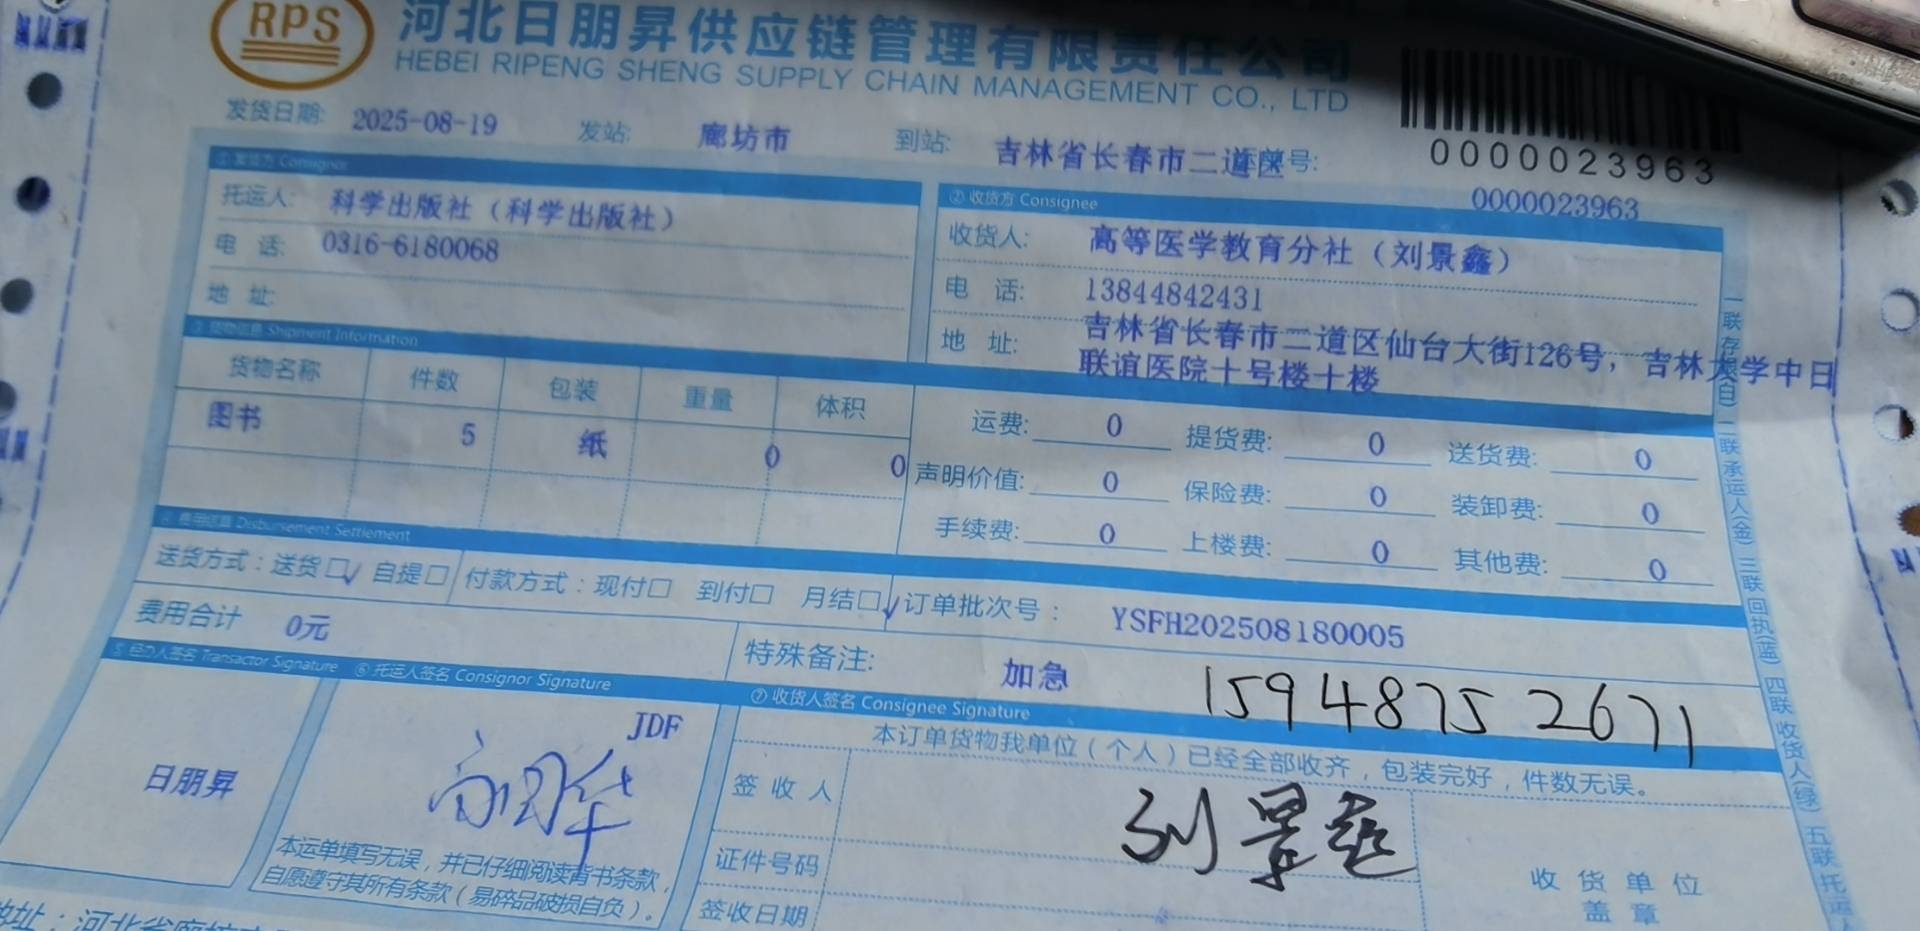 RPS
河北日朋昇供应链管理有限责任公司
HEBEI RIPENG SHENG SUPPLY CHAIN MANAGEMENT CO., LTD
发货日期: 2025-08-19 发站: 廊坊市 到站: 吉林省长春市二道区 号:
0000023963
0000023963
① 发货方 Consignor
托运人: 科学出版社（科学出版社）
电 话: 0316-6180068
地 址:
② 收货方 Consignee
收货人: 高等医学教育分社（刘景鑫）
电 话: 13844842431
地 址: 吉林省长春市二道区仙台大街126号，吉林大学中日
联谊医院十号楼十楼
③ 货物信息 Shipment Information
货物名称 件数 包装 重量 体积
图书 5 纸 0 0
运费: 0 提货费: 0 送货费: 0
声明价值: 0 保险费: 0 装卸费: 0
手续费: 0 上楼费: 0 其他费: 0
④ 费用结算 Disbursement Settlement
送货方式：送货□√ 自提□ 付款方式：现付□ 到付□ 月结□√ 订单批次号： YSFH202508180005
费用合计 0元
特殊备注: 加急 15948752671
⑤ 经办人签名 Transactor Signature ⑥ 托运人签名 Consignor Signature
日朋昇
JDF
本运单填写无误，并已仔细阅读背书条款，
自愿遵守其所有条款（易碎品破损自负）。
⑦ 收货人签名 Consignee Signature
本订单货物我单位（个人）已经全部收齐，包装完好，件数无误。
签 收 人
证件号码
签收日期
收 货 单 位
盖 章
一联存根(白) 二联承运人(金) 三联回执(蓝) 四联收货人(绿) 五联托运人
地址：河北省廊坊